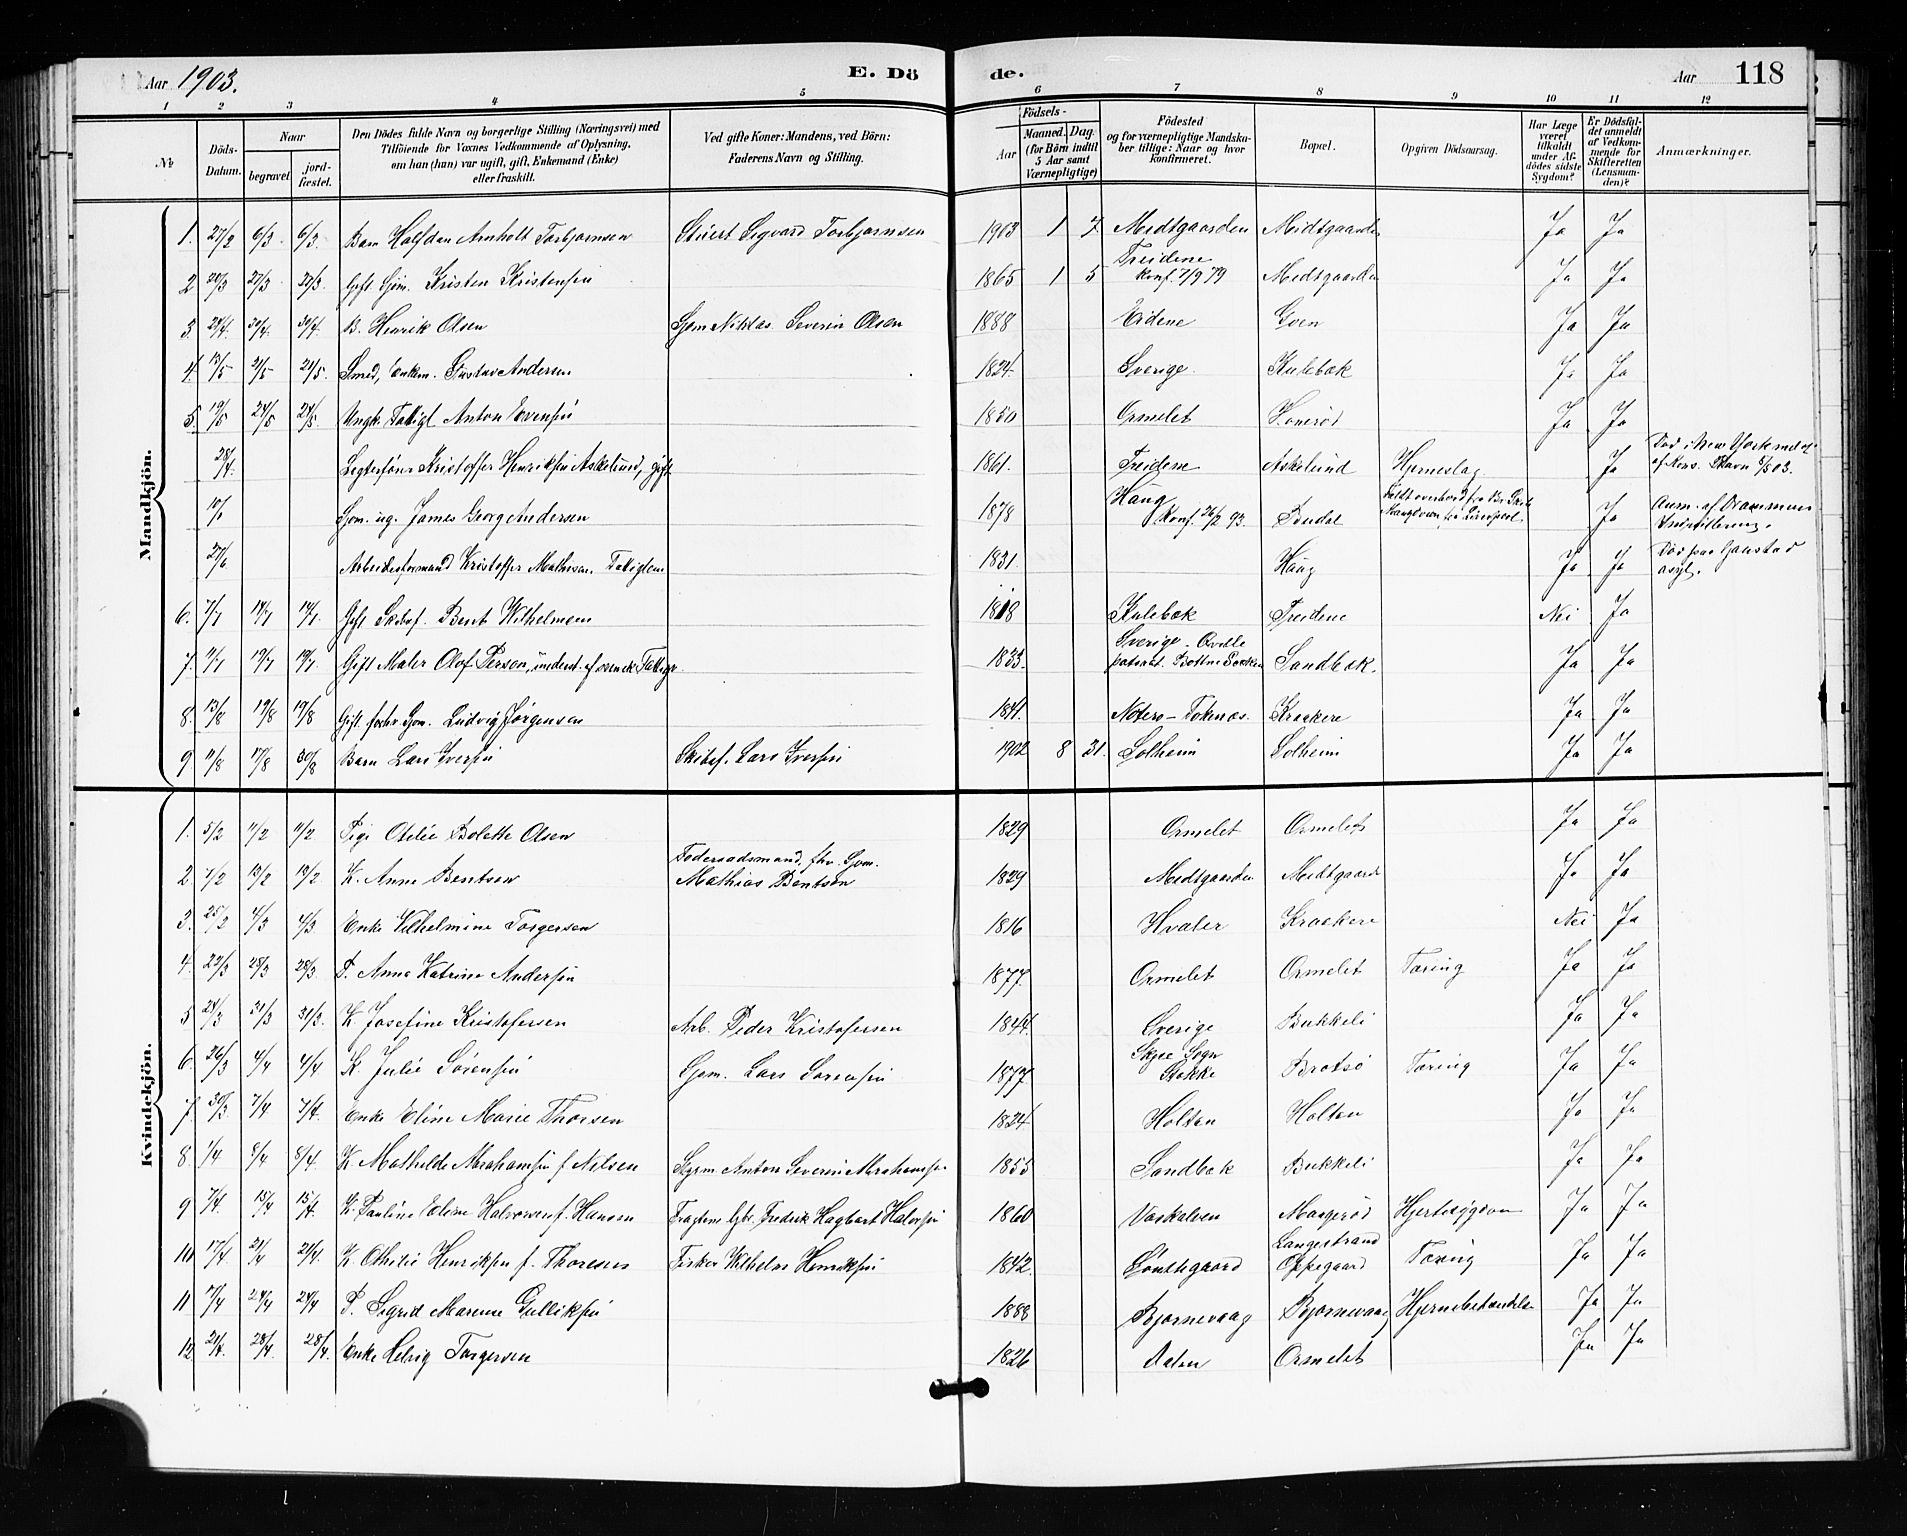 Aar 1903.
E. Dö
de.
Aar 118
1 2 3 4 5 6 7 8 9 10 11 12
№
Döds-Datum.
Naar
begravet
jordfæstet.
Den Dödes fulde Navn og borgerlige Stilling (Næringsvei) med Tilföiende for Voxnes Vedkommende af Oplysning, om han (hun) var ugift, gift, Enkemand (Enke) eller fraskilt.
Ved gifte Koner: Mandens, ved Börn: Faderens Navn og Stilling.
Födsels-
Aar
Maaned. Dag.
(for Börn indtil 5 Aar samt Værnepligtige)
Födested og for værnepligtige Mandskaber tillige: Naar og hvor konfirmeret.
Bopæl.
Opgiven Dödsaarsag.
Har Læge været tilkaldt under Afdödes sidste Sygdom?
Er Dödsfaldet anmeldt af Vedkommende for Skifteretten (Lensmanden)?
Anmærkninger.
Mandkjön.
1. 27/2 6/3. 6/3. Barn Halfdan Arnholt Torbjørnsen Stuert Sigvard Torbjørnsen 1903 1 7 Medtgaarden Medtgaarden Ja Ja
2 20/3 27/3 27/3. Gift Sjøm. Kristen Kristensen 1865 1 5 Treidene Konf. 7/9 79 Medtgaarden Ja Ja
3. 24/4. 30/4. 30/4. B. Henrik Olsen Sjøm Niklas Severin Olsen 1888 Eidene Gven Ja Ja
4. 13/5 21/5 21/5. Smed, Enkem. Gustav Andersen 1824. Sverige. Kulebæk Ja Ja
5. 19/5 24/5 24/5. Ungk. Fattigl Anton Evensen 1850 Ormelet Ja Ja
28/4. Kristoffer Henriksen Askelund, gift 1861. Treidene Askelund Hjerneslag. Ja Død i New York
10/1 Sjøm. ug. James Georg Andersen 1878 Haug Konf. 26/2 93. Ja
27/6 Arbeidsformand Kristoffer Mathisen. Fattiglem 1831. Haug Ja Ja Død paa Gaustad asyl.
6. 7/7 14/7 14/7. Gift Skibsf. Bent Wilhelmsen 1818 Kulebæk Treidene Nei Ja
7. 11/7 19/7 19/7. Gift Maler Olof Person, 1833. Sverige - Qville Sandbæk. Ja Ja
8. 13/8 19/8 19/8 Gift forhv Sjøm. Ludvig Jørgensen 1841. Nøterø - Kraakere Ja Ja
9 11/8 17/8 30/8 Barn Lars Iversen Skibsf. Lars Iversen 1902 8 31. Solheim Solheim Ja Ja
Kvindekjön.
1. 5/2 11/2 11/2 Pige Otelie Bolette Olsen 1829 Ormelet Ormelet Ja Ja
2 7/2 13/2 13/2 K. Anne Bentsen Føderaadsmand, fhv. Sjøm. Mathias Bentsen 1829 Medtgaarden Medtgaarde Ja Ja
3. 25/2 4/3 4/3 Enke Vilhelmine Torgersen 1816 Hvaler Kraakere Nei Ja
4. 22/3 28/3 28/3 P. Anna Katrine Andersen 1877. Ormelet Ormelet Tæring Ja Ja
5 24/3 31/3 31/3. K. Josefine Kristofersen Arb. Peder Kristofersen 1844. Sverige Bukkeli Ja Ja
6. 26/3 4/4 4/4 K Julie Sørensen Sjøm. Lars Sørensen 1877 Skjee Sogn Stokke Brøtsø Tæring Ja Ja
7. 30/3 7/4 7/4. Enke Eline Marie Thorsen 1824 Holten Holten Ja Ja
8 1/4 8/4 8/4. K Mathilde Abrahamsen f. Nilsen Anton Severin Abrahamsen 1855 Sandbæk Bukkeli Ja Ja
9 7/4. 15/4 15/4. K. Pauline Eline Halvorsen f. Hansen Fredrik Hagbart Halvorsen 1860 Vaskalven Maagerød Hjertesygdom Ja Ja
10 17/4 21/4 21/4. K. Othilie Henriksen f. Thoresen Fisker Wilhelm Henriksen 1842. Langestrand Oppegaard Tæring Ja Ja
11 17/4 24/4 24/4 P. Sigrid Marenne Gulliksen 1888 Bjørnevaag Bjørnevaag Hjernebetændelse Ja Ja
12 21/4. 28/4. 28/4. Enke Helvig Torgersen 1826 Dalen Ormelet Ja Ja